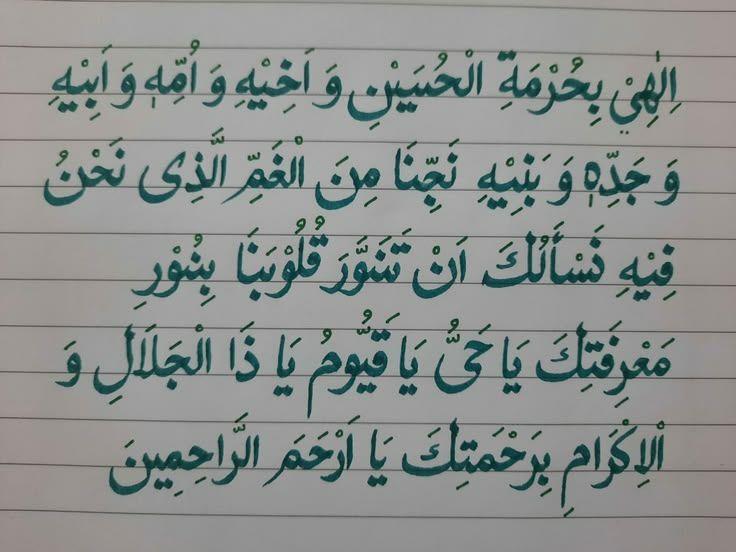 اِلٰهِيْ بِحُرْمَةِ الْحُسَيْنِ وَ اَخِيْهِ وَ اُمِّهٖ وَ اَبِيْهِ
وَ جَدِّهٖ وَ بَنِيْهِ نَجِّنَا مِنَ الْغَمِّ الَّذِى نَحْنُ
فِيْهِ نَسْأَلُكَ اَنْ تَنَوَّرَ قُلُوْبَنَا بِنُوْرِ
مَعْرِفَتِكَ يَا حَىُّ يَا قَيُّومُ يَا ذَا الْجَلَالِ وَ
الْاِكْرَامِ بِرَحْمَتِكَ يَا اَرْحَمَ الرَّاحِمِينَ